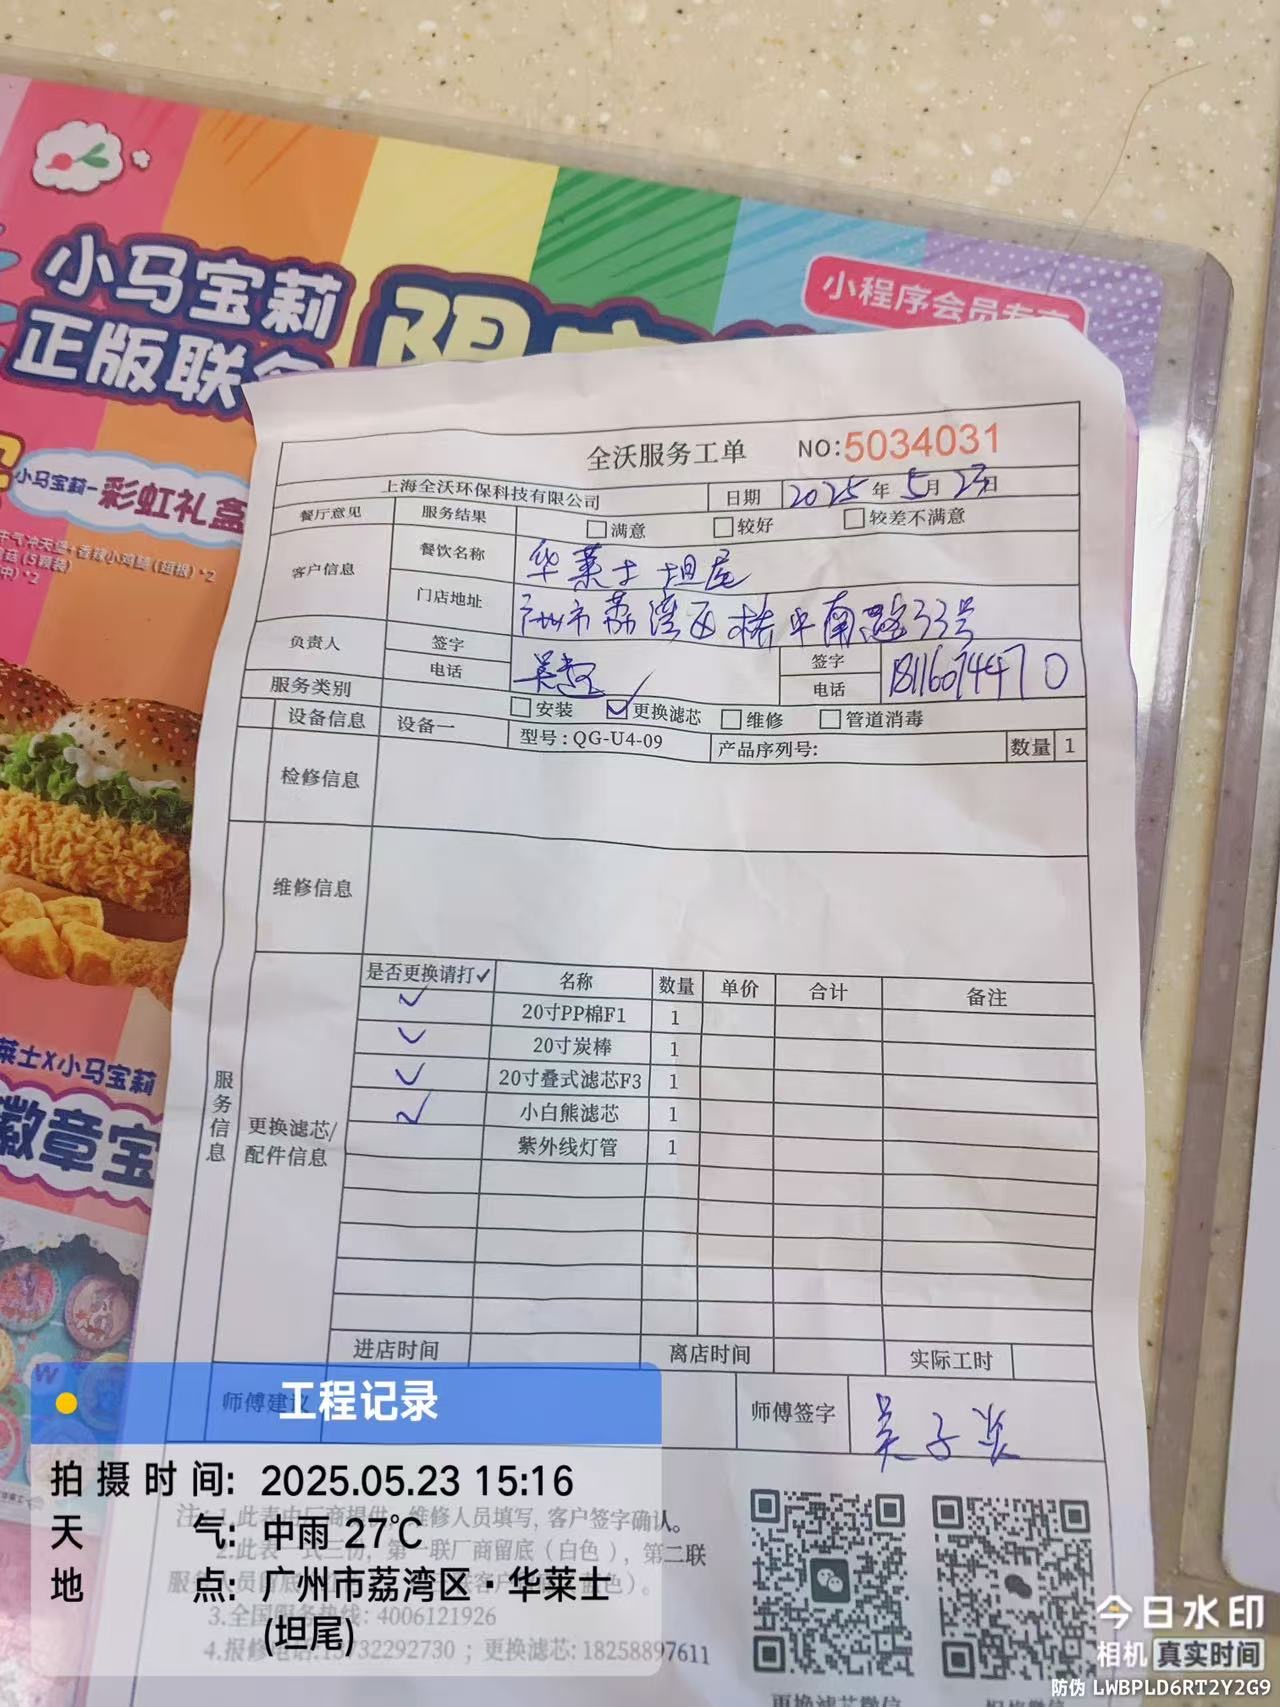 小马宝莉
正版联
小程序会员专享
小马宝莉-彩虹礼盒
莱士X小马宝莉
徽章宝
全沃服务工单 NO:5034031
上海全沃环保科技有限公司 日期 2025年5月23日
餐厅意见 服务结果 满意 较好 较差不满意
客户信息 餐饮名称 华莱士坦尾
门店地址 广州市荔湾区桥中南路33号
负责人 签字 签字
电话 电话 18116074470
服务类别 安装 更换滤芯 维修 管道消毒
设备信息 设备一 型号:QG-U4-09 产品序列号: 数量 1
检修信息
维修信息
服务信息
更换滤芯/
配件信息
是否更换请打✓ 名称 数量 单价 合计 备注
✓ 20寸PP棉F1 1
✓ 20寸炭棒 1
✓ 20寸叠式滤芯F3 1
✓ 小白熊滤芯 1
紫外线灯管 1
进店时间 离店时间 实际工时
师傅建议 师傅签字
注:1.此表由厂商提供,维修人员填写,客户签字确认。
2.此表一式三份,第一联厂商留底(白色),第二联
3.全国服务热线:4006121926
4.报修电话:13732292730;更换滤芯:18258897611
更换滤芯微信
工程记录
拍摄时间: 2025.05.23 15:16
天气: 中雨 27℃
地点: 广州市荔湾区·华莱士
(坦尾)
今日水印
相机 真实时间
防伪 LWBPLD6RT2Y2G9